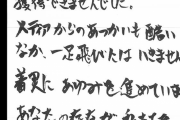 獲得できませんでした。
メディアからのあつかいも酷い
なか、一足飛びとはいきません
着実にあゆみを進めていま
あなたの存在が